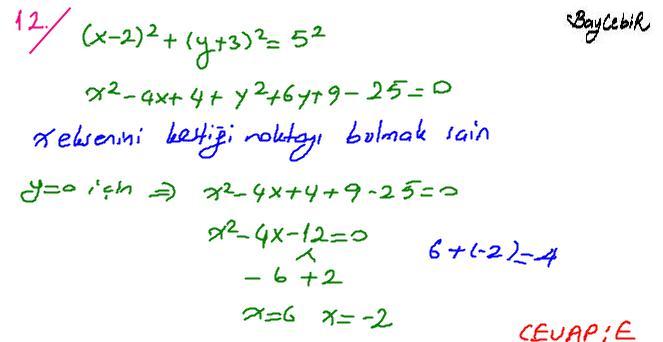 12./ (x-2)²+(y+3)²=5²
BayCebiR
x²-4x+4+y²+6y+9-25=0
x eksenini kestiği noktayı bulmak için
y=0 için ⇒ x²-4x+4+9-25=0
x²-4x-12=0
-6 +2
6+(-2)=4
x=6 x=-2
CEVAP:E